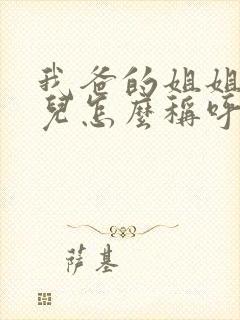 我爸的姐姐
兒怎麼稱呼
萨基